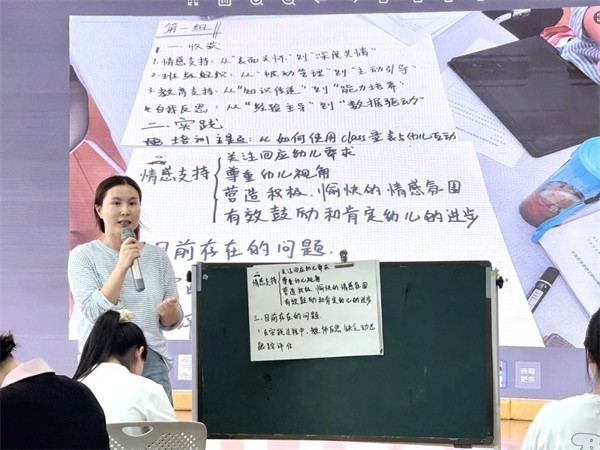 第一组
一、收获
1.情感支持:从“表面关怀”到“深度共情”
2.班级组织:从“被动管理”到“主动引导”
3.教育支持:从“知识传递”到“能力培养”
4.自我反思:从“经验主导”到“数据驱动”
二、实践
培训主题:从如何使用class量表与幼儿互动
情感支持
关注回应幼儿需求
尊重幼儿视角
营造积极、愉快的情感氛围
有效鼓励和肯定幼儿的进步
目前存在的问题.
二
情感支持
关注回应幼儿需求
尊重幼儿视角
营造积极、愉快的情感氛围
有效鼓励和肯定幼儿的进步
三.目前存在的问题.
1.在实践过程中,教师反思缺乏动态
评估
查看
更多